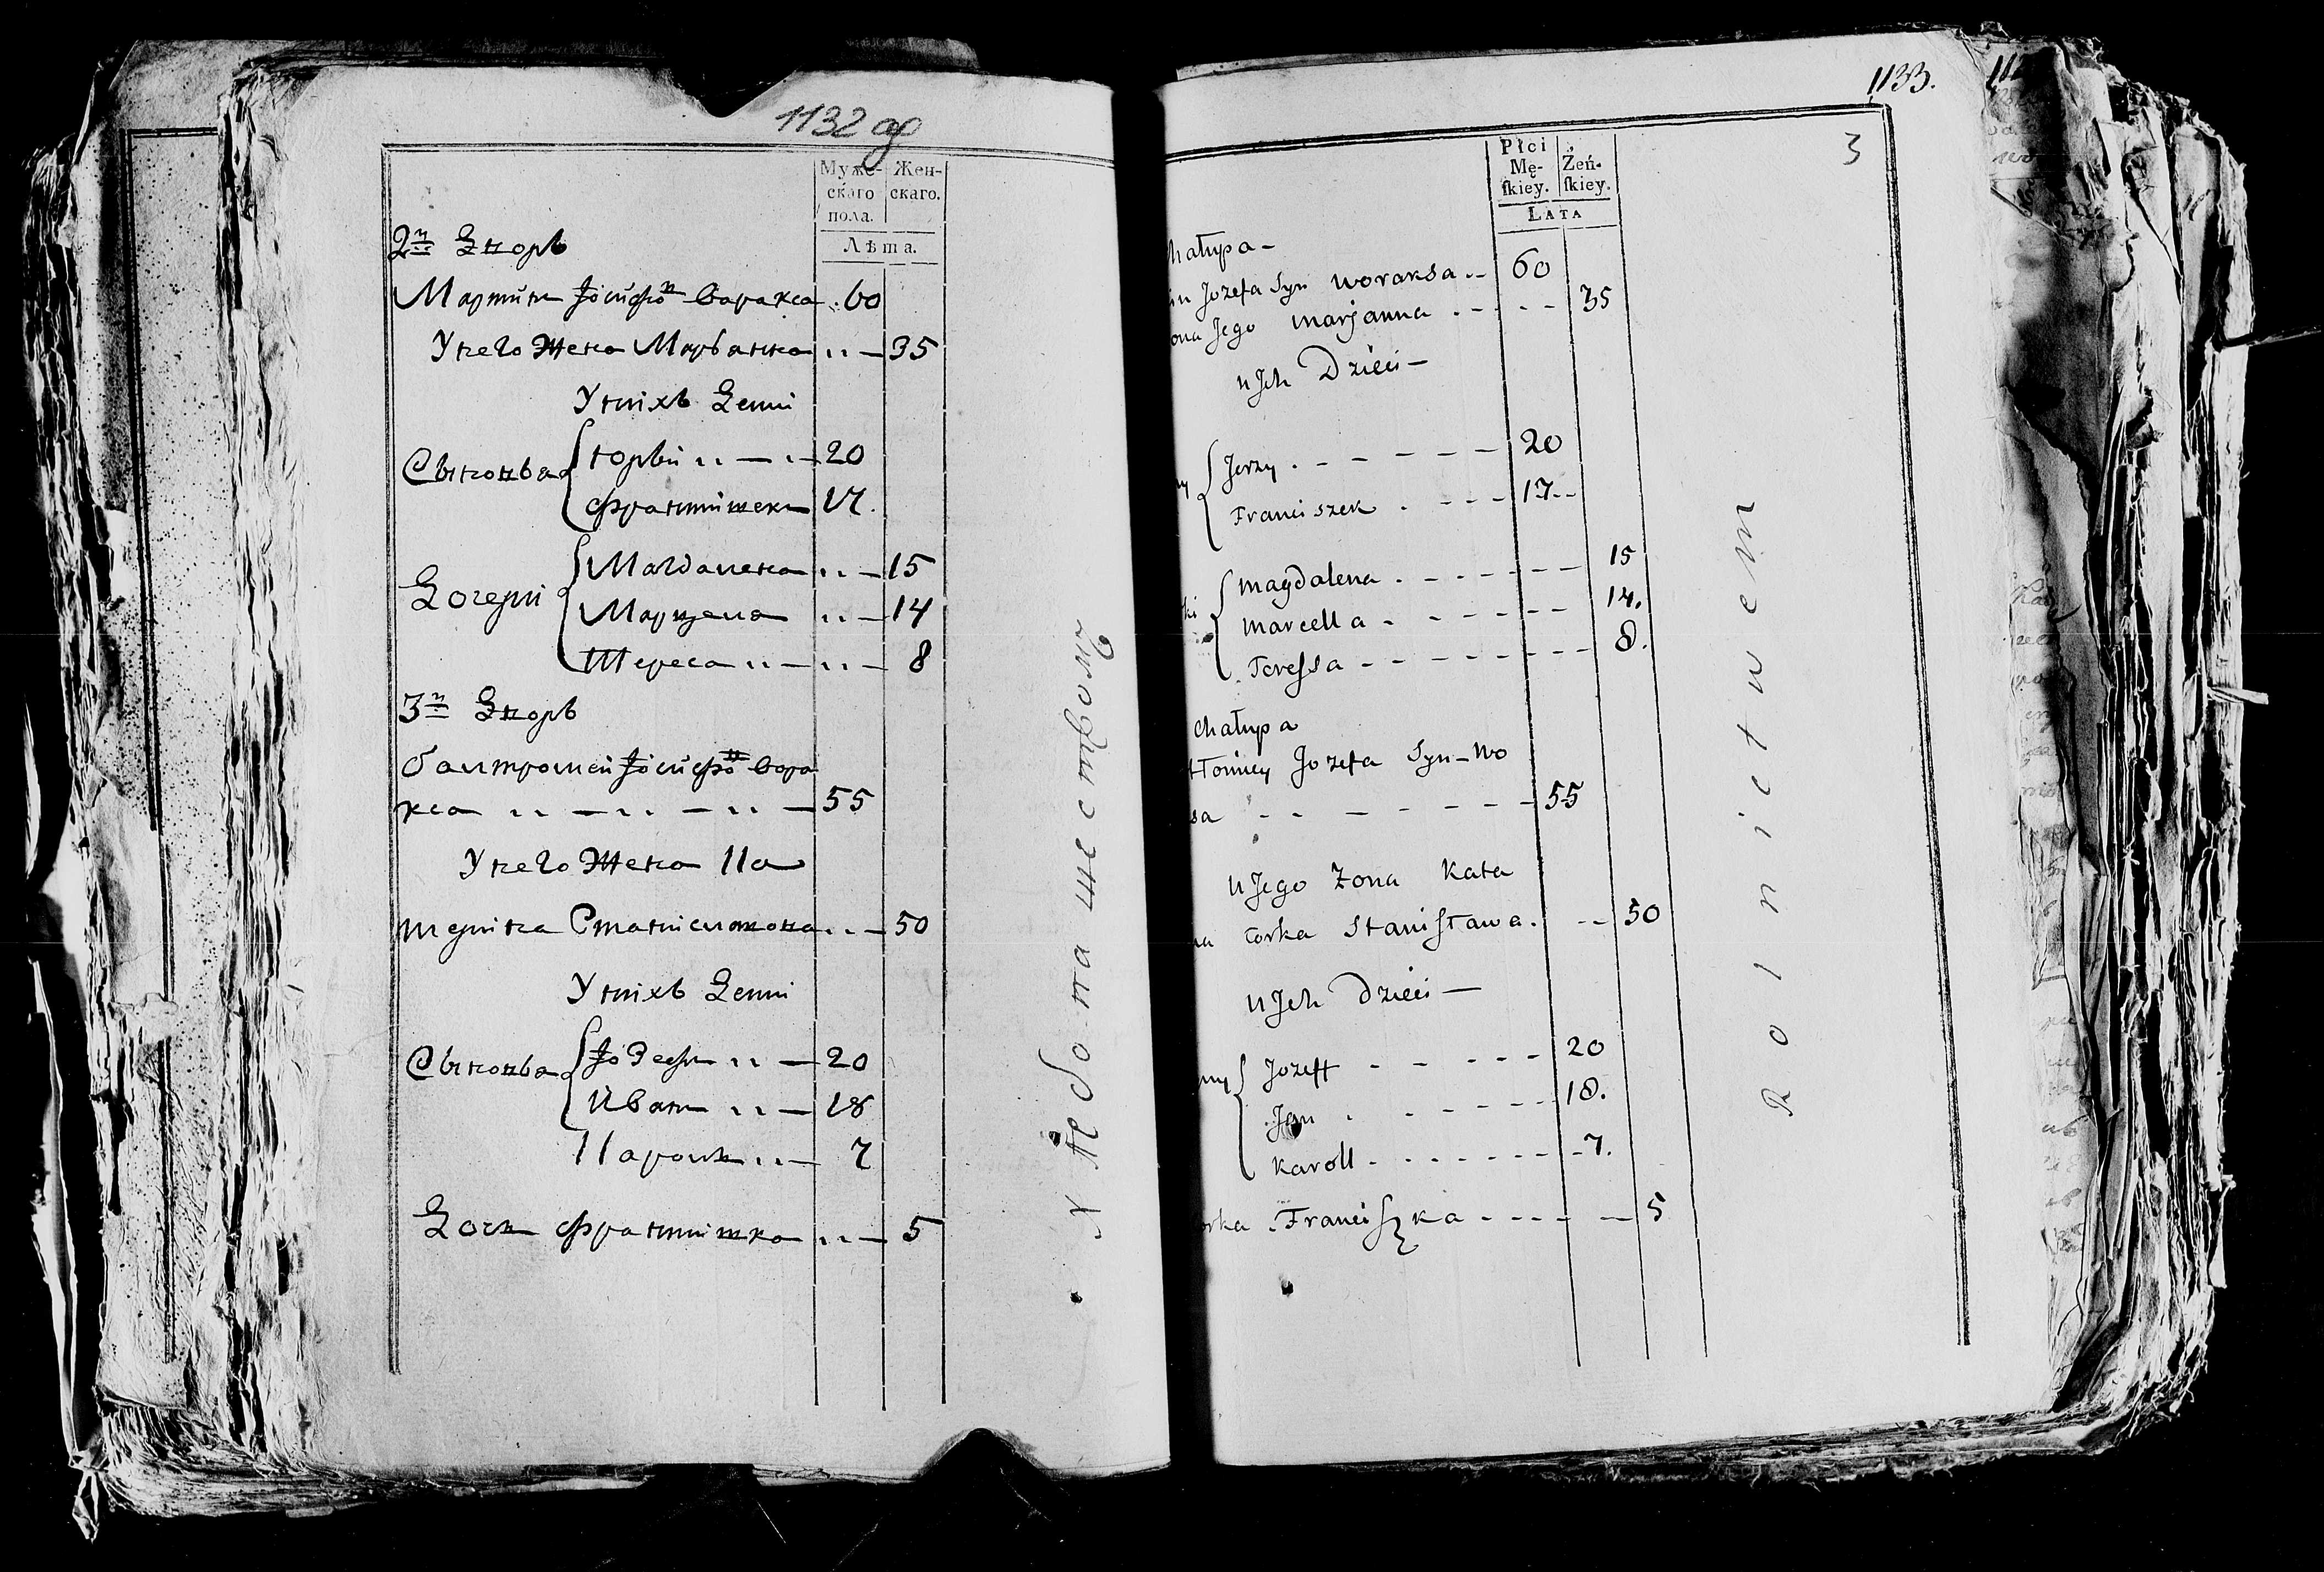 1132 об
Муже-
скаго
пола.
Жен-
скаго.
Лѣта.
2й Дворъ
Мартинъ Іосифов Воракса 60
У него Жена Марьанна 35
У нихъ Дети
Сыновья
Юрьи 20
Францишекъ 17.
Дочери
Магдалена 15
Марцела 14
Тереса 8
3й Дворъ
Балтромей Іосифов Вора
кса 55
У него Жена Ка
терина Станиславова 50
У нихъ Дети
Сыновья
Іозефъ 20
Иванъ 18
Кароль 7
Дочь Францишка 5
Хлебопашествомъ
1133.
3
Płci
Mę-
ſkiey.
Żeń-
ſkiey.
LATA
hałupa -
in Jozefa Syn Woraksa 60
ona Jego Marjanna 35
u Jch Dzieci -
ny
Jerzy 20
Franciszek 17
ki
Magdalena 15
Marcella 14.
Tereſsa 8.
Chałupa
tłomiey Jozefa Syn - Wo
sa 55
u Jego Żona Kata
na Corka Staniſława. 50
u Jch Dzieci -
ny
Jozeff 20
Jan 18.
Karoll 7.
orka Franciſzka 5
Rolnictwem